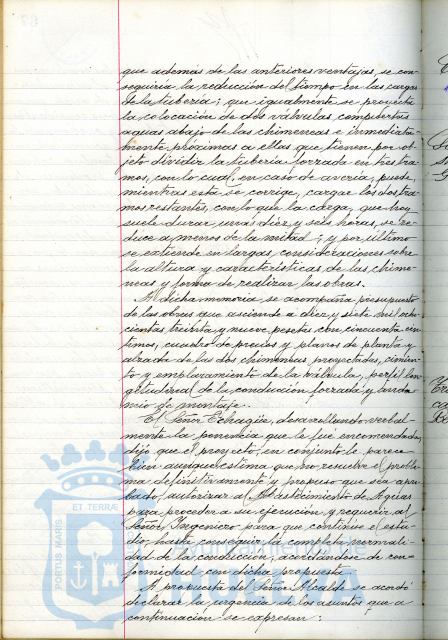 que además de las anteriores ventajas, se con-
seguiría la reducción del tiempo en las cargas
de la tubería; que igualmente se proyecta
la colocación de dos válvulas compuertas
aguas abajo de las chimeneas e inmediata-
mente próximas a ellas que tienen por ob-
jeto dividir la tubería forzada en tres tra-
mos, con lo cual, en caso de avería, puede,
mientras esta se corrige, cargar los dos tra-
mos restantes, con lo que la carga, que hoy
suele durar unas diez y seis horas, se re-
duce a menos de la mitad; y por último
se extiende en largas consideraciones sobre
la altura y características de las chime-
neas y forma de realizar las obras.
A dicha memoria se acompaña presupuesto
de las obras que asciende a diez y siete mil ocho-
cientas treinta y nueve pesetas con cincuenta cén-
timos, cuadro de precios y planos de planta y
alzada de las dos chimeneas proyectadas, cimien-
to y emplazamiento de la válvula, perfil lon-
gitudinal de la conducción forzada y anda-
mio de montaje.
El Señor Echagüe, desarrollando verbal-
mente la ponencia que le fue encomendada,
dijo que el proyecto, en conjunto le parece
bien aunque estima que no resuelve el proble-
ma definitivamente y propuso que sea apro-
bado, autorizar al Abastecimiento de Aguas
para proceder a su ejecución y requerir al
Señor Ingeniero para que continúe el estu-
dio, hasta conseguir la completa normali-
dad de la conducción, acordándose de con-
formidad con dicha propuesta.
A propuesta del Señor Alcalde se acordó
declarar la urgencia de los asuntos que a
continuación se expresan:
PORTUS MARIS
ET TERRAE